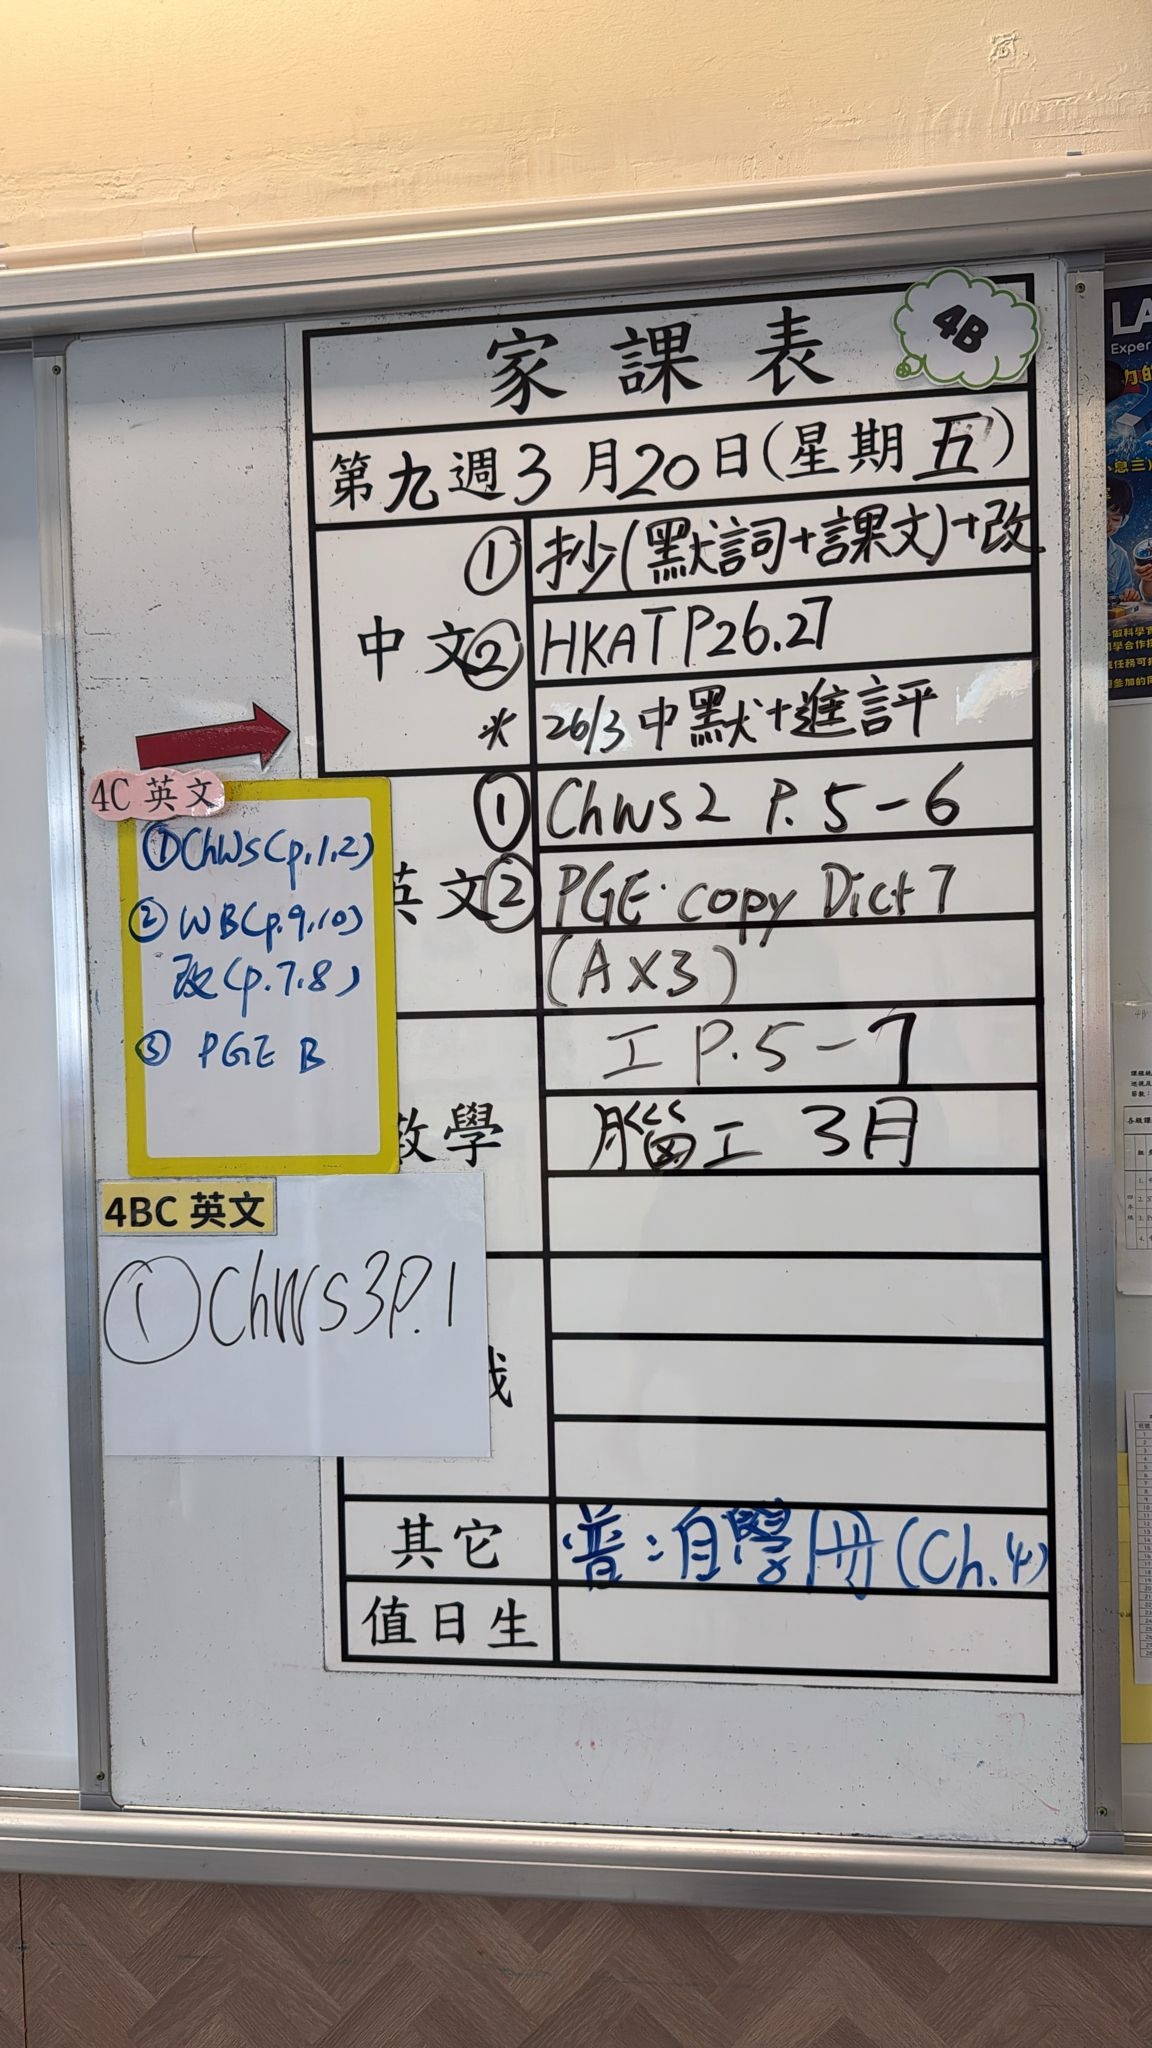 家課表
4B
第九週3月20日(星期五)
中文
① 抄(默詞+課文)+改
② HKAT P26.27
* 26/3 中默+進評
英文
① ChWS2 P. 5-6
② PGE copy Dict 7
(A X3)
數學
工 P.5-7
腦工 3月
我
其它
普:自學冊(Ch.4)
值日生
4C 英文
① ChWS(p.1,2)
② WB(p.9,10)
改(p.7.8)
③ PGE B
4BC 英文
① ChWS3P.1
LA
Exper